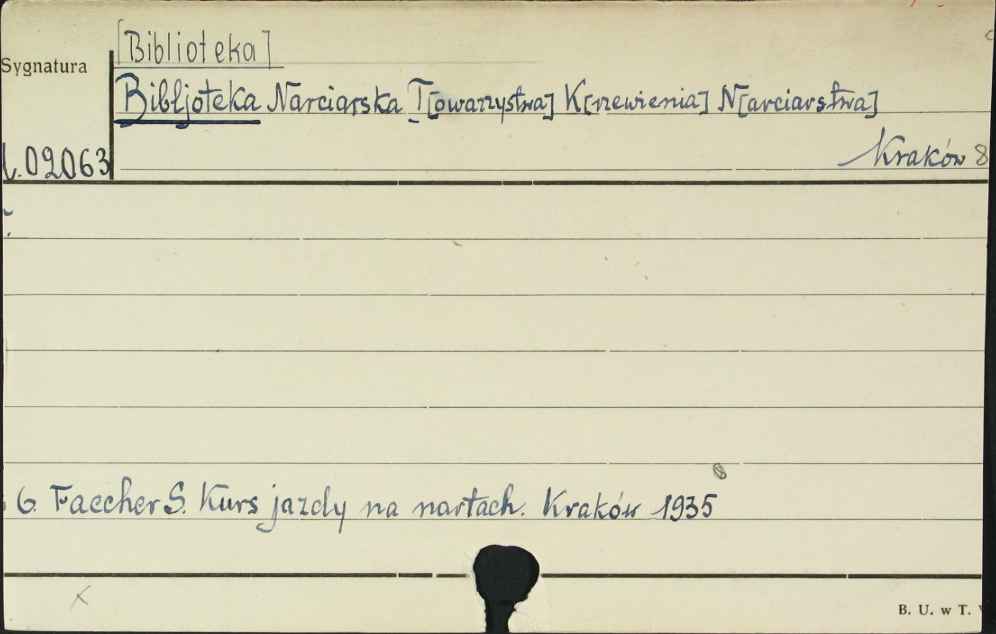 [Biblioteka]
Sygnatura
Bibljoteka Narciarska T[owarzystwa] K[rzewienia] N[arciarstwa]
02063
Kraków 8
6. Faecher S. Kurs jazdy na nartach. Kraków 1935
B. U. w T.